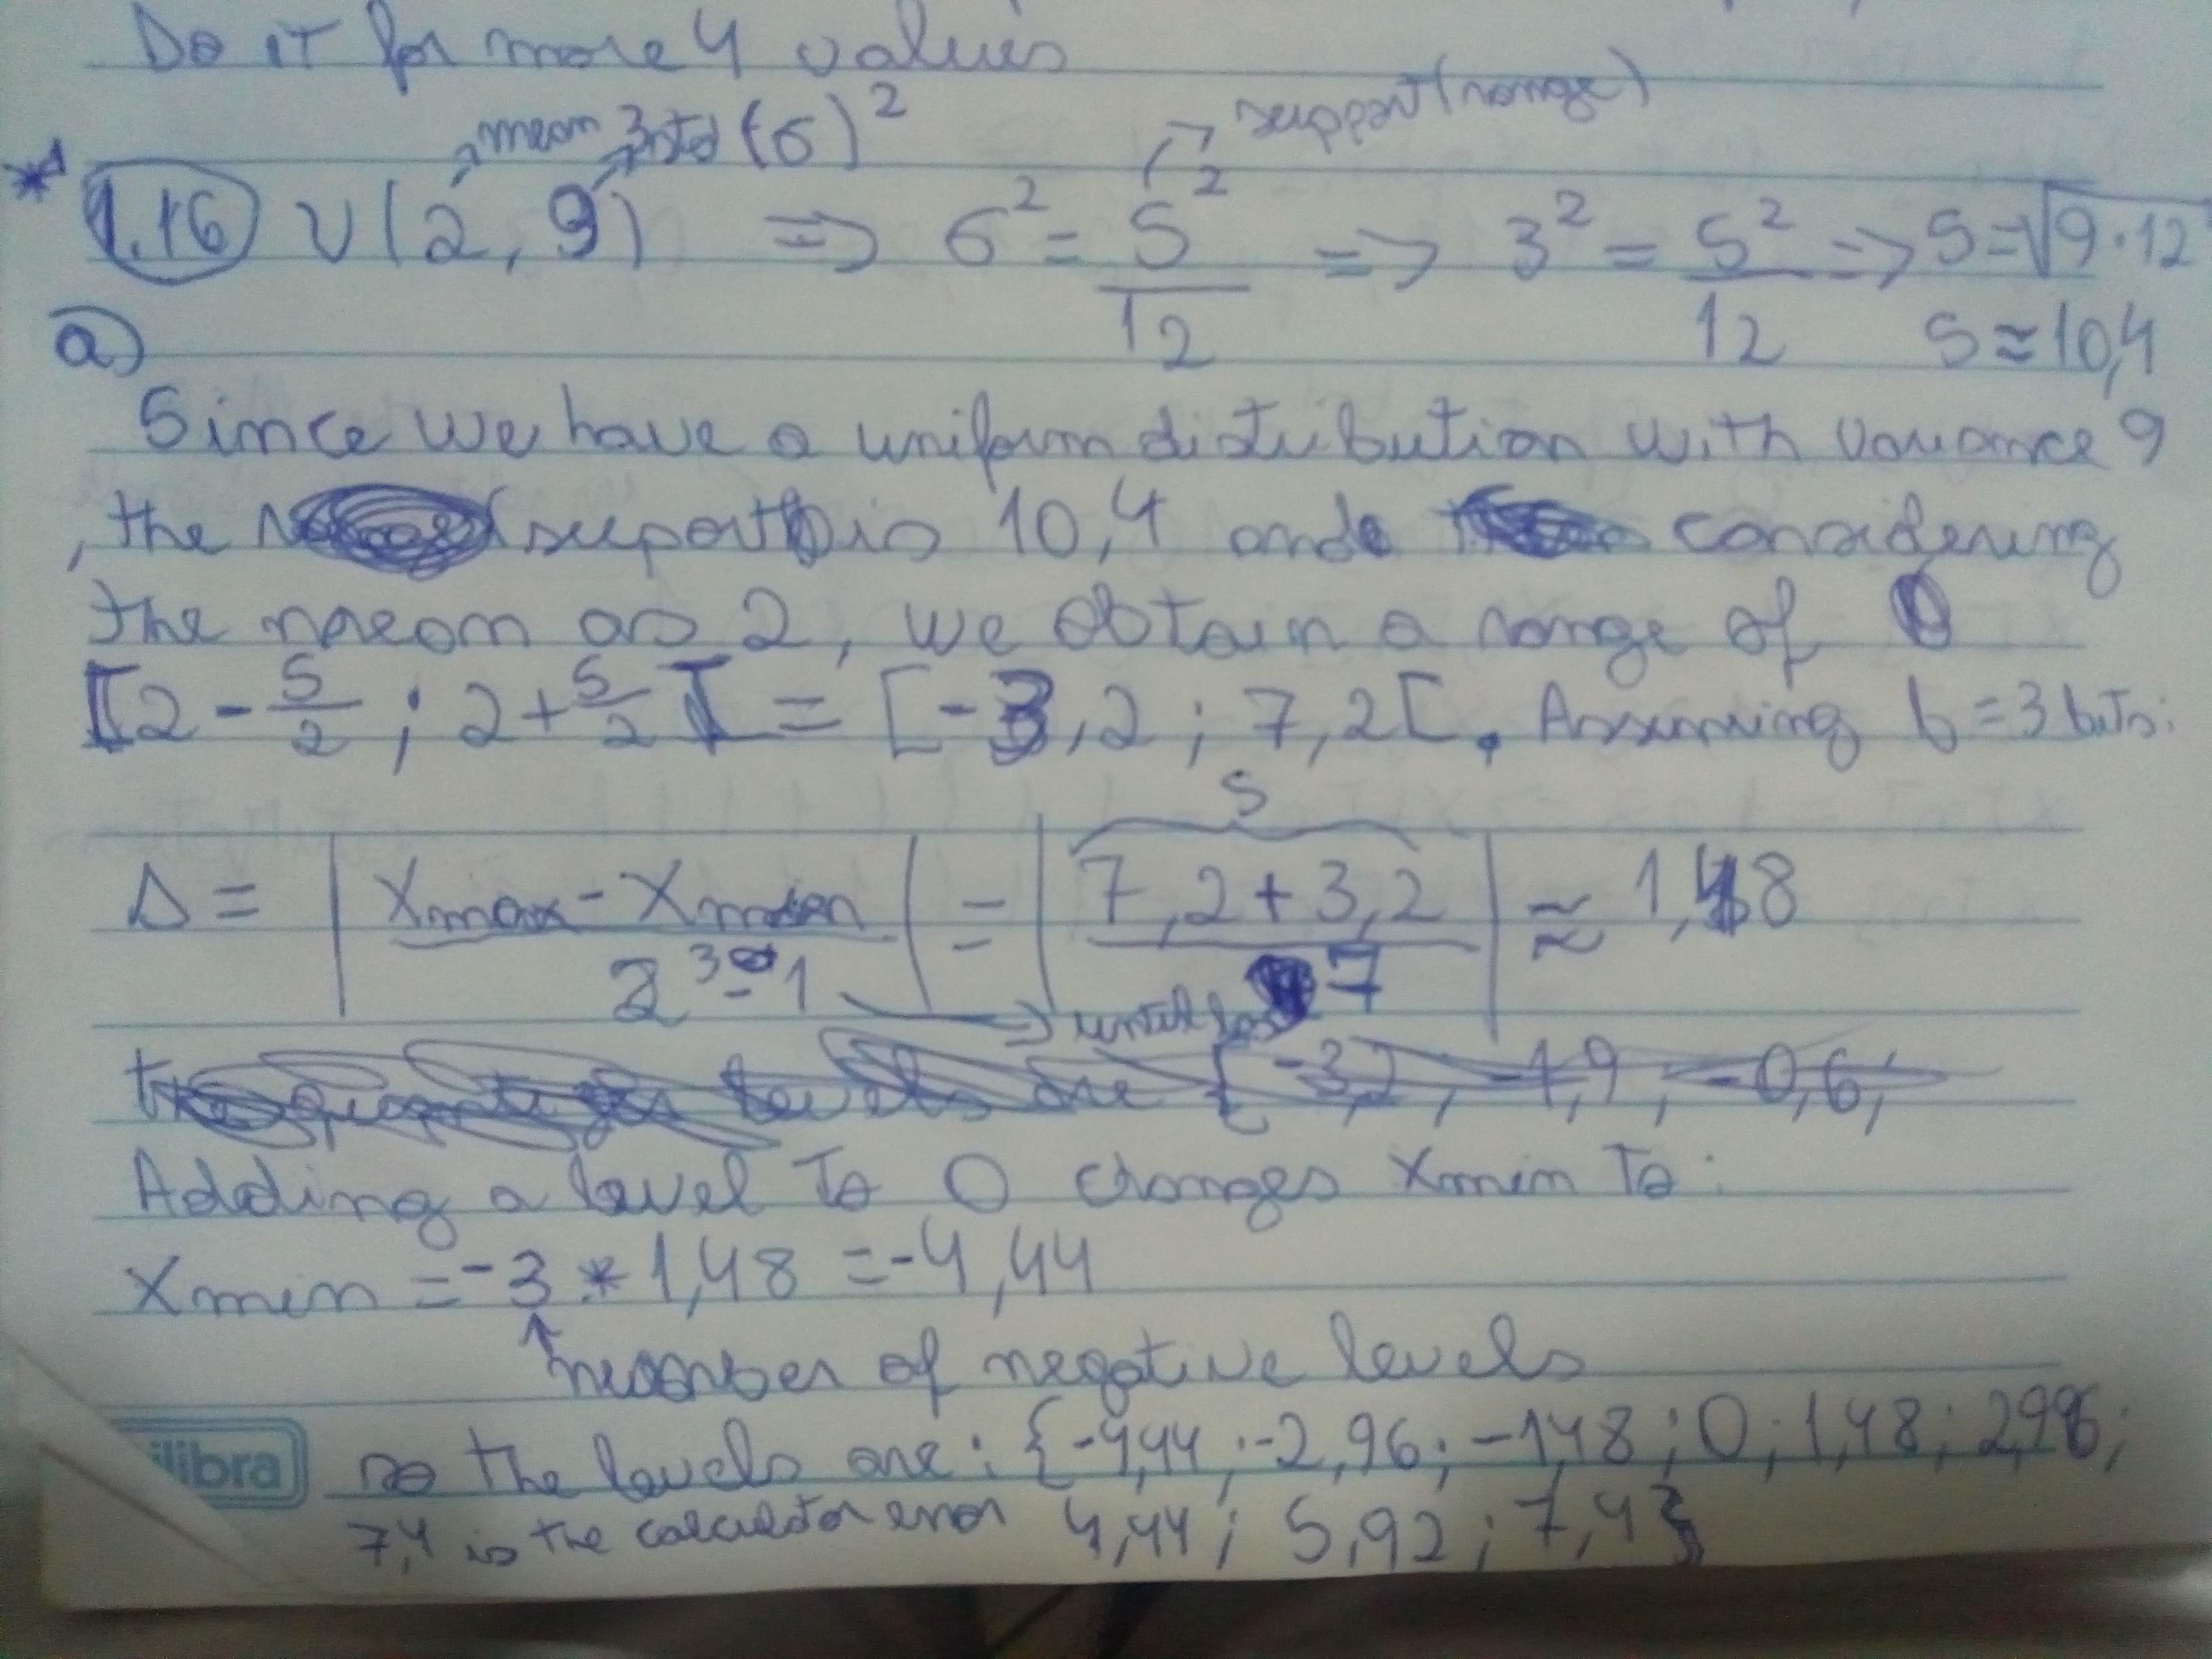 Do it for more 4 values
mean 3 std (σ)² support (range)
*1 1.16 U(2, 9) => σ² = S²/12 => 3² = S²/12 => S = √9·12
a) S ≈ 10,4
Since we have a uniform distribution with variance 9
, the suport is 10,4 and considering
the mean as 2, we obtain a range of
[2 - S/2 ; 2 + S/2[ = [-3,2 ; 7,2[. Assuming b = 3 bits:
S
Δ = | Xmax - Xmin / 2³ - 1 | = | 7,2 + 3,2 / 7 | ≈ 1,48
levels are { -3,2 , -1,9 , -0,6 ,
Adding a level to 0 changes Xmin to:
Xmin = -3 * 1,48 = -4,44
number of negative levels
so the levels are: {-4,44 ; -2,96 ; -1,48 ; 0 ; 1,48 ; 2,96 ;
7,4 is the calculator error 4,44 ; 5,92 ; 7,4}
ilibra